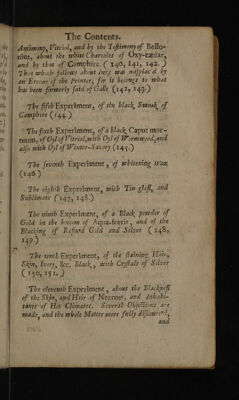 The Contents.
Antimony, Vitriol, and by the Testimony of Bello-
nius, about the white Charcoles of Oxy-cædar,
and by that of Camphire (140, 141, 142. )
That which follows about Inks was misplac'd by
an Errour of the Printer, for it belongs to what
has been formerly said of Galls (142, 143.)
The fifth Experiment, of the black Smoak of
Camphire (144.)
The sixth Experiment, of a black Caput mor-
tuum, of Oyl of Vitriol, with Oyl of Wormwood, and
also with Oyl of Winter-Savory (145.)
The seventh Experiment, of whitening Wax
(146)
The eighth Experiment, with Tin-glass, and
Sublimate (147, 148.)
The ninth Experiment, of a Black powder of
Gold in the bottom of Aqua-fortis, and of the
Blacking of Refin'd Gold and Silver (148,
149.)
The tenth Experiment, of the staining Hair,
Skin, Ivory, &c. Black, with Crystals of Silver
(150, 151.)
The eleventh Experiment, about the Blackness
of the Skin, and Hair of Negroes, and Inhabi-
tants of Hot Climates. Several Objections are
made, and the whole Matter more fully discours'd,
and